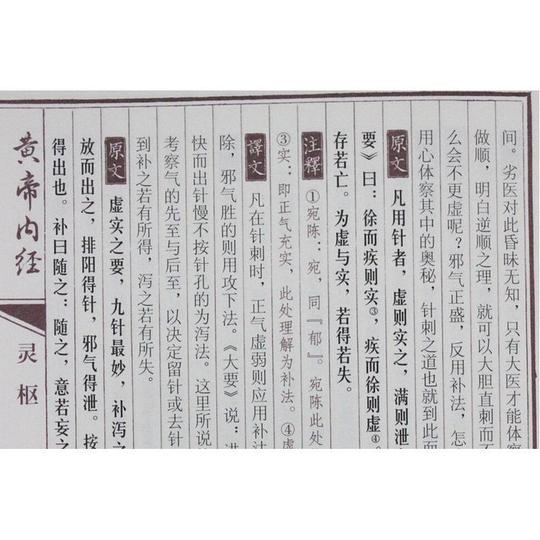 间。劣医对此昏昧无知，只有大医才能体察
做顺，明白逆顺之理，就可以大胆直刺而不
么会不更虚呢？邪气正盛，反用补法，怎
用心体察其中的奥秘，针刺之道也就到此而
原文 凡用针者，虚则实之，满则泄
要》曰：徐而疾则实③，疾而徐则虚④。
存若亡。为虚与实，若得若失。
注釋 ①宛陈：宛，同“郁”。宛陈此处
③实：即正气充实，此处理解为补法。④虚
譯文 凡在针刺时，正气虚弱则应用补法
除，邪气胜的则用攻下法。《大要》说：进
快而出针慢不按针孔的为泻法。这里所说
考察气的先至与后至，以决定留针或去针
到补之若有所得，泻之若有所失。
原文 虚实之要，九针最妙，补泻之
放而出之，排阳得针，邪气得泄。按
得出也。补曰随之：随之，意若妄之
黄帝内經
灵枢